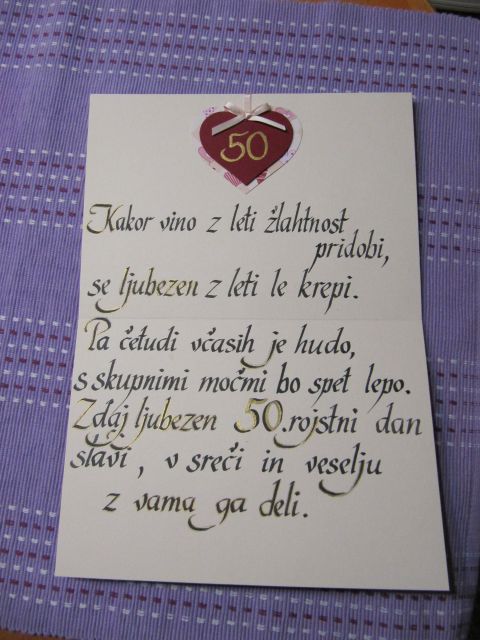 50
Kakor vino z leti žlahtnost
pridobi,
se ljubezen z leti le krepi.
Pa četudi včasih je hudo,
s skupnimi močmi bo spet lepo.
Zdaj ljubezen 50. rojstni dan
slavi, v sreči in veselju
z vama ga deli.